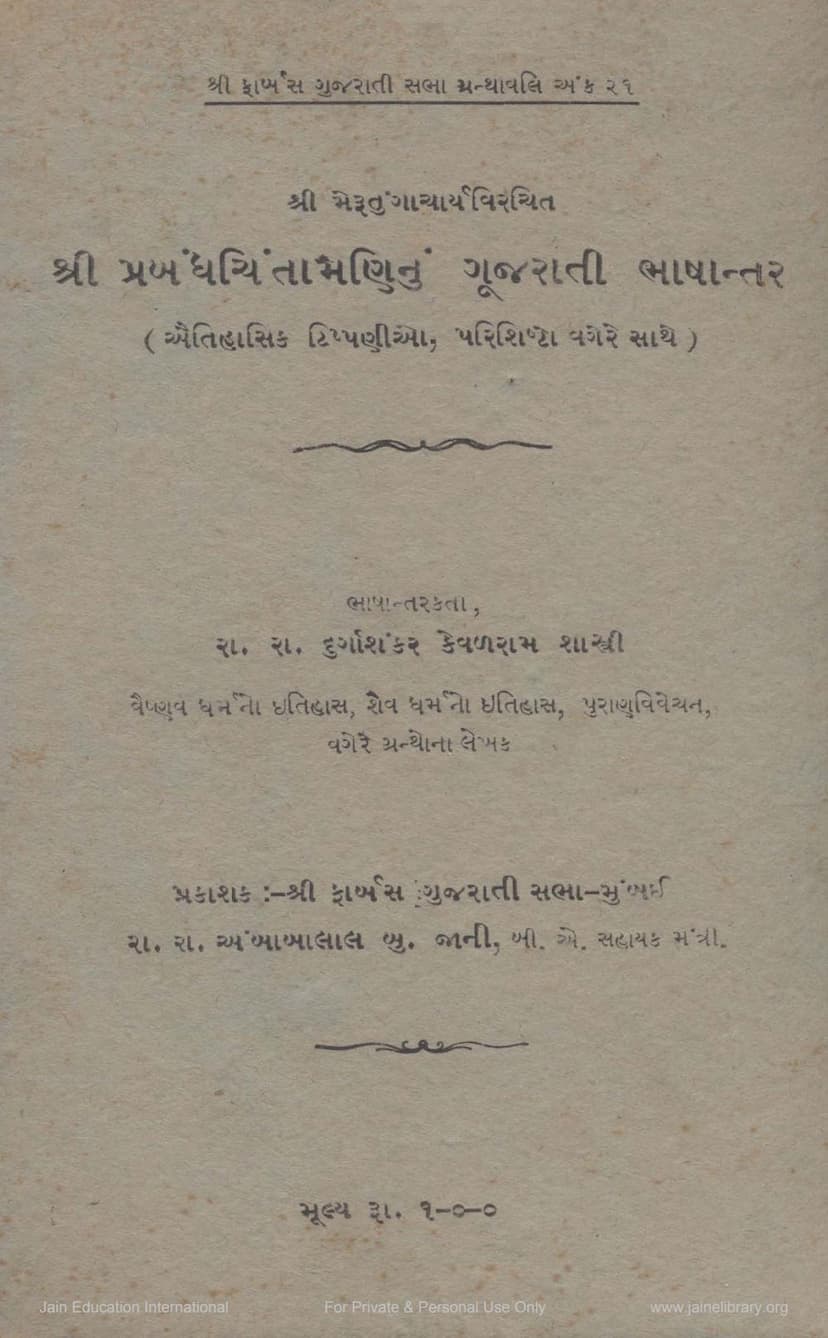 શ્રી ફાર્બસ ગુજરાતી સભા ગ્રન્થાવલિ અંક ૨૧
શ્રી મેરૂતુંગાચાર્યવિરચિત
શ્રી પ્રબંધચિંતામણિનું ગૂજરાતી ભાષાન્તર
( ઐતિહાસિક ટિપ્પણીઓ, પરિશિષ્ટો વગેરે સાથે )
ભાષાન્તરકર્તા,
રા. રા. દુર્ગાશંકર કેવળરામ શાસ્ત્રી
વૈષ્ણવ ધર્મનો ઇતિહાસ, શૈવ ધર્મનો ઇતિહાસ, પુરાણવિવેચન,
વગેરે ગ્રન્થોના લેખક
પ્રકાશક :–શ્રી ફાર્બસ ગુજરાતી સભા–મુંબઈ
રા. રા. અંબાબાલાલ બુ. જાની, બી. એ. સહાયક મંત્રી.
મૂલ્ય રૂા. ૧–૦–૦
Jain Education International For Private & Personal Use Only www.jainelibrary.org